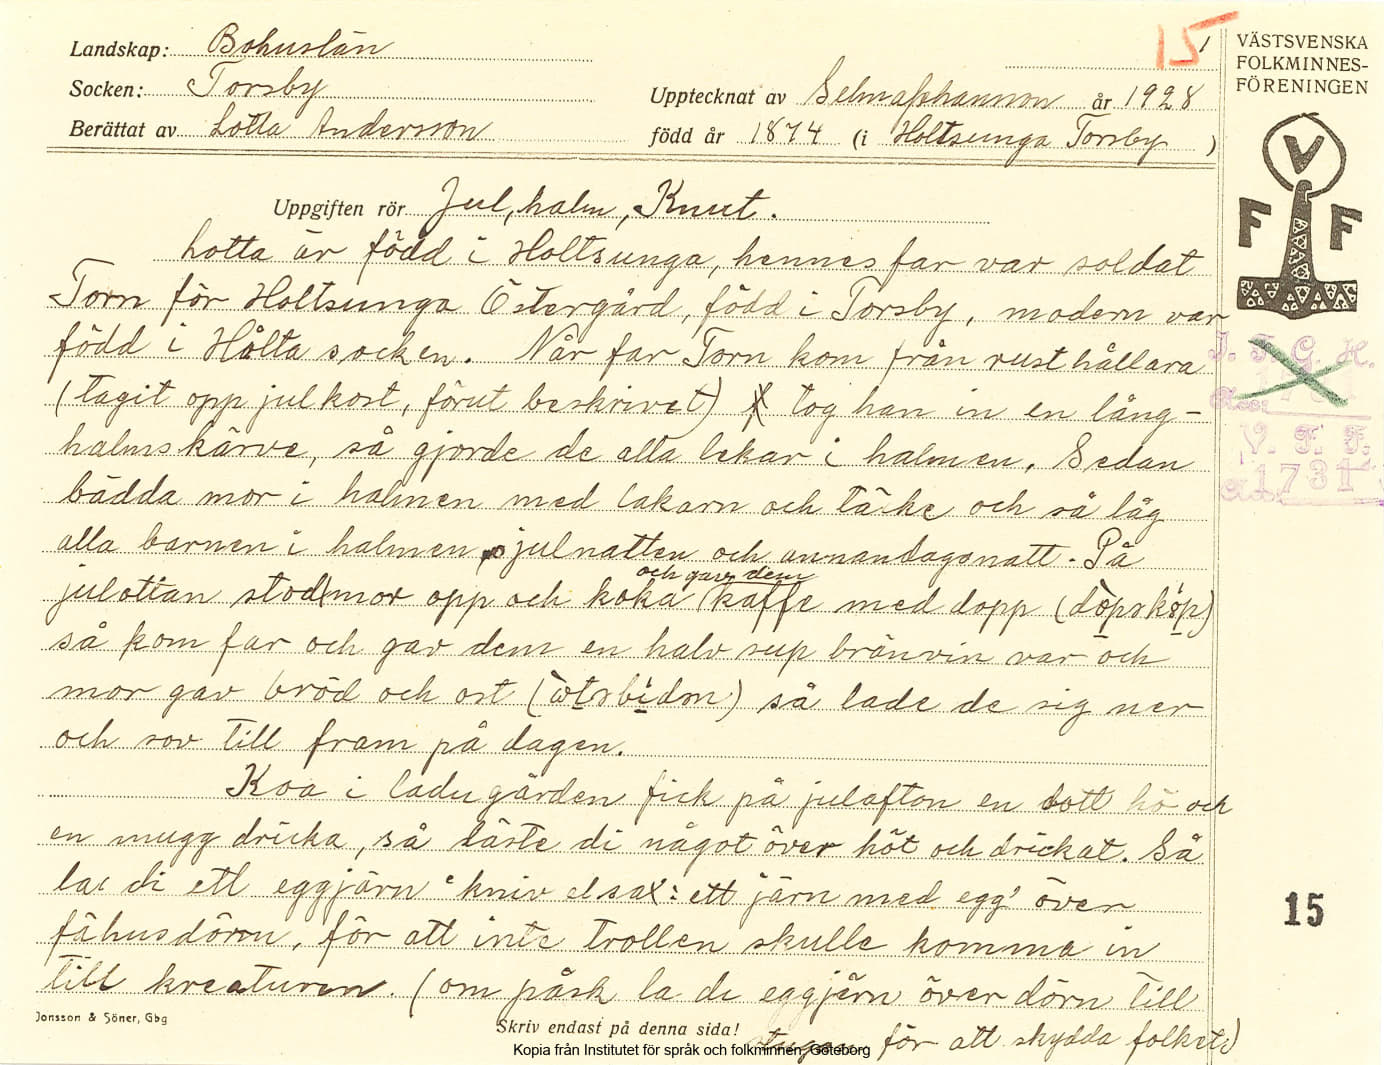 Landskap: Bohuslän
Socken: Torsby
Berättat av Lotta Andersson
15
1
Upptecknat av Selma Johansson år 1928
född år 1874 (i Holtsunga Torsby )
VÄSTSVENSKA
FOLKMINNES-
FÖRENINGEN
V
F F
Uppgiften rör Jul, halm, Knut.
Lotta är född i Holtsunga, hennes far var soldat
Torn för Holtsunga Östergård, född i Torsby, modern var
född i Hålta socken. När far Torn kom från rusthållara
(tagit opp julkost, förut beskrivet) tog han in en lång-
halmskärve, så gjorde de alla lekar i halmen. Sedan
bädda mor i halmen med lakarn och täcke och så låg
alla barnen i halmen julnatten och annandagsnatt. På
julottan stod mor opp och koka och gav dem kaffe med dopp (dòpskȯp)
så kom far och gav dem en halv sup brännvin var och
mor gav bröd och ost (òstsbidsn) så lade de sig ner
och sov till fram på dagen.
Koa i ladugården fick på julafton en tott hö och
en mugg dricka, så läste di något över höt och drickat. Så
la di ett eggjärn 'kniv el sax: ett järn med egg' över
fähusdörrn, för att inte trollen skulle komma in
till kreaturen. (om påsk la de eggjärn över dörn till
stugan för att skydda folket)
J. F. G. H.
Acc.
V. F. F.
Acc. 1731
15
Jonsson & Söner, Gbg
Skriv endast på denna sida!
Kopia från Institutet för språk och folkminnen, Göteborg